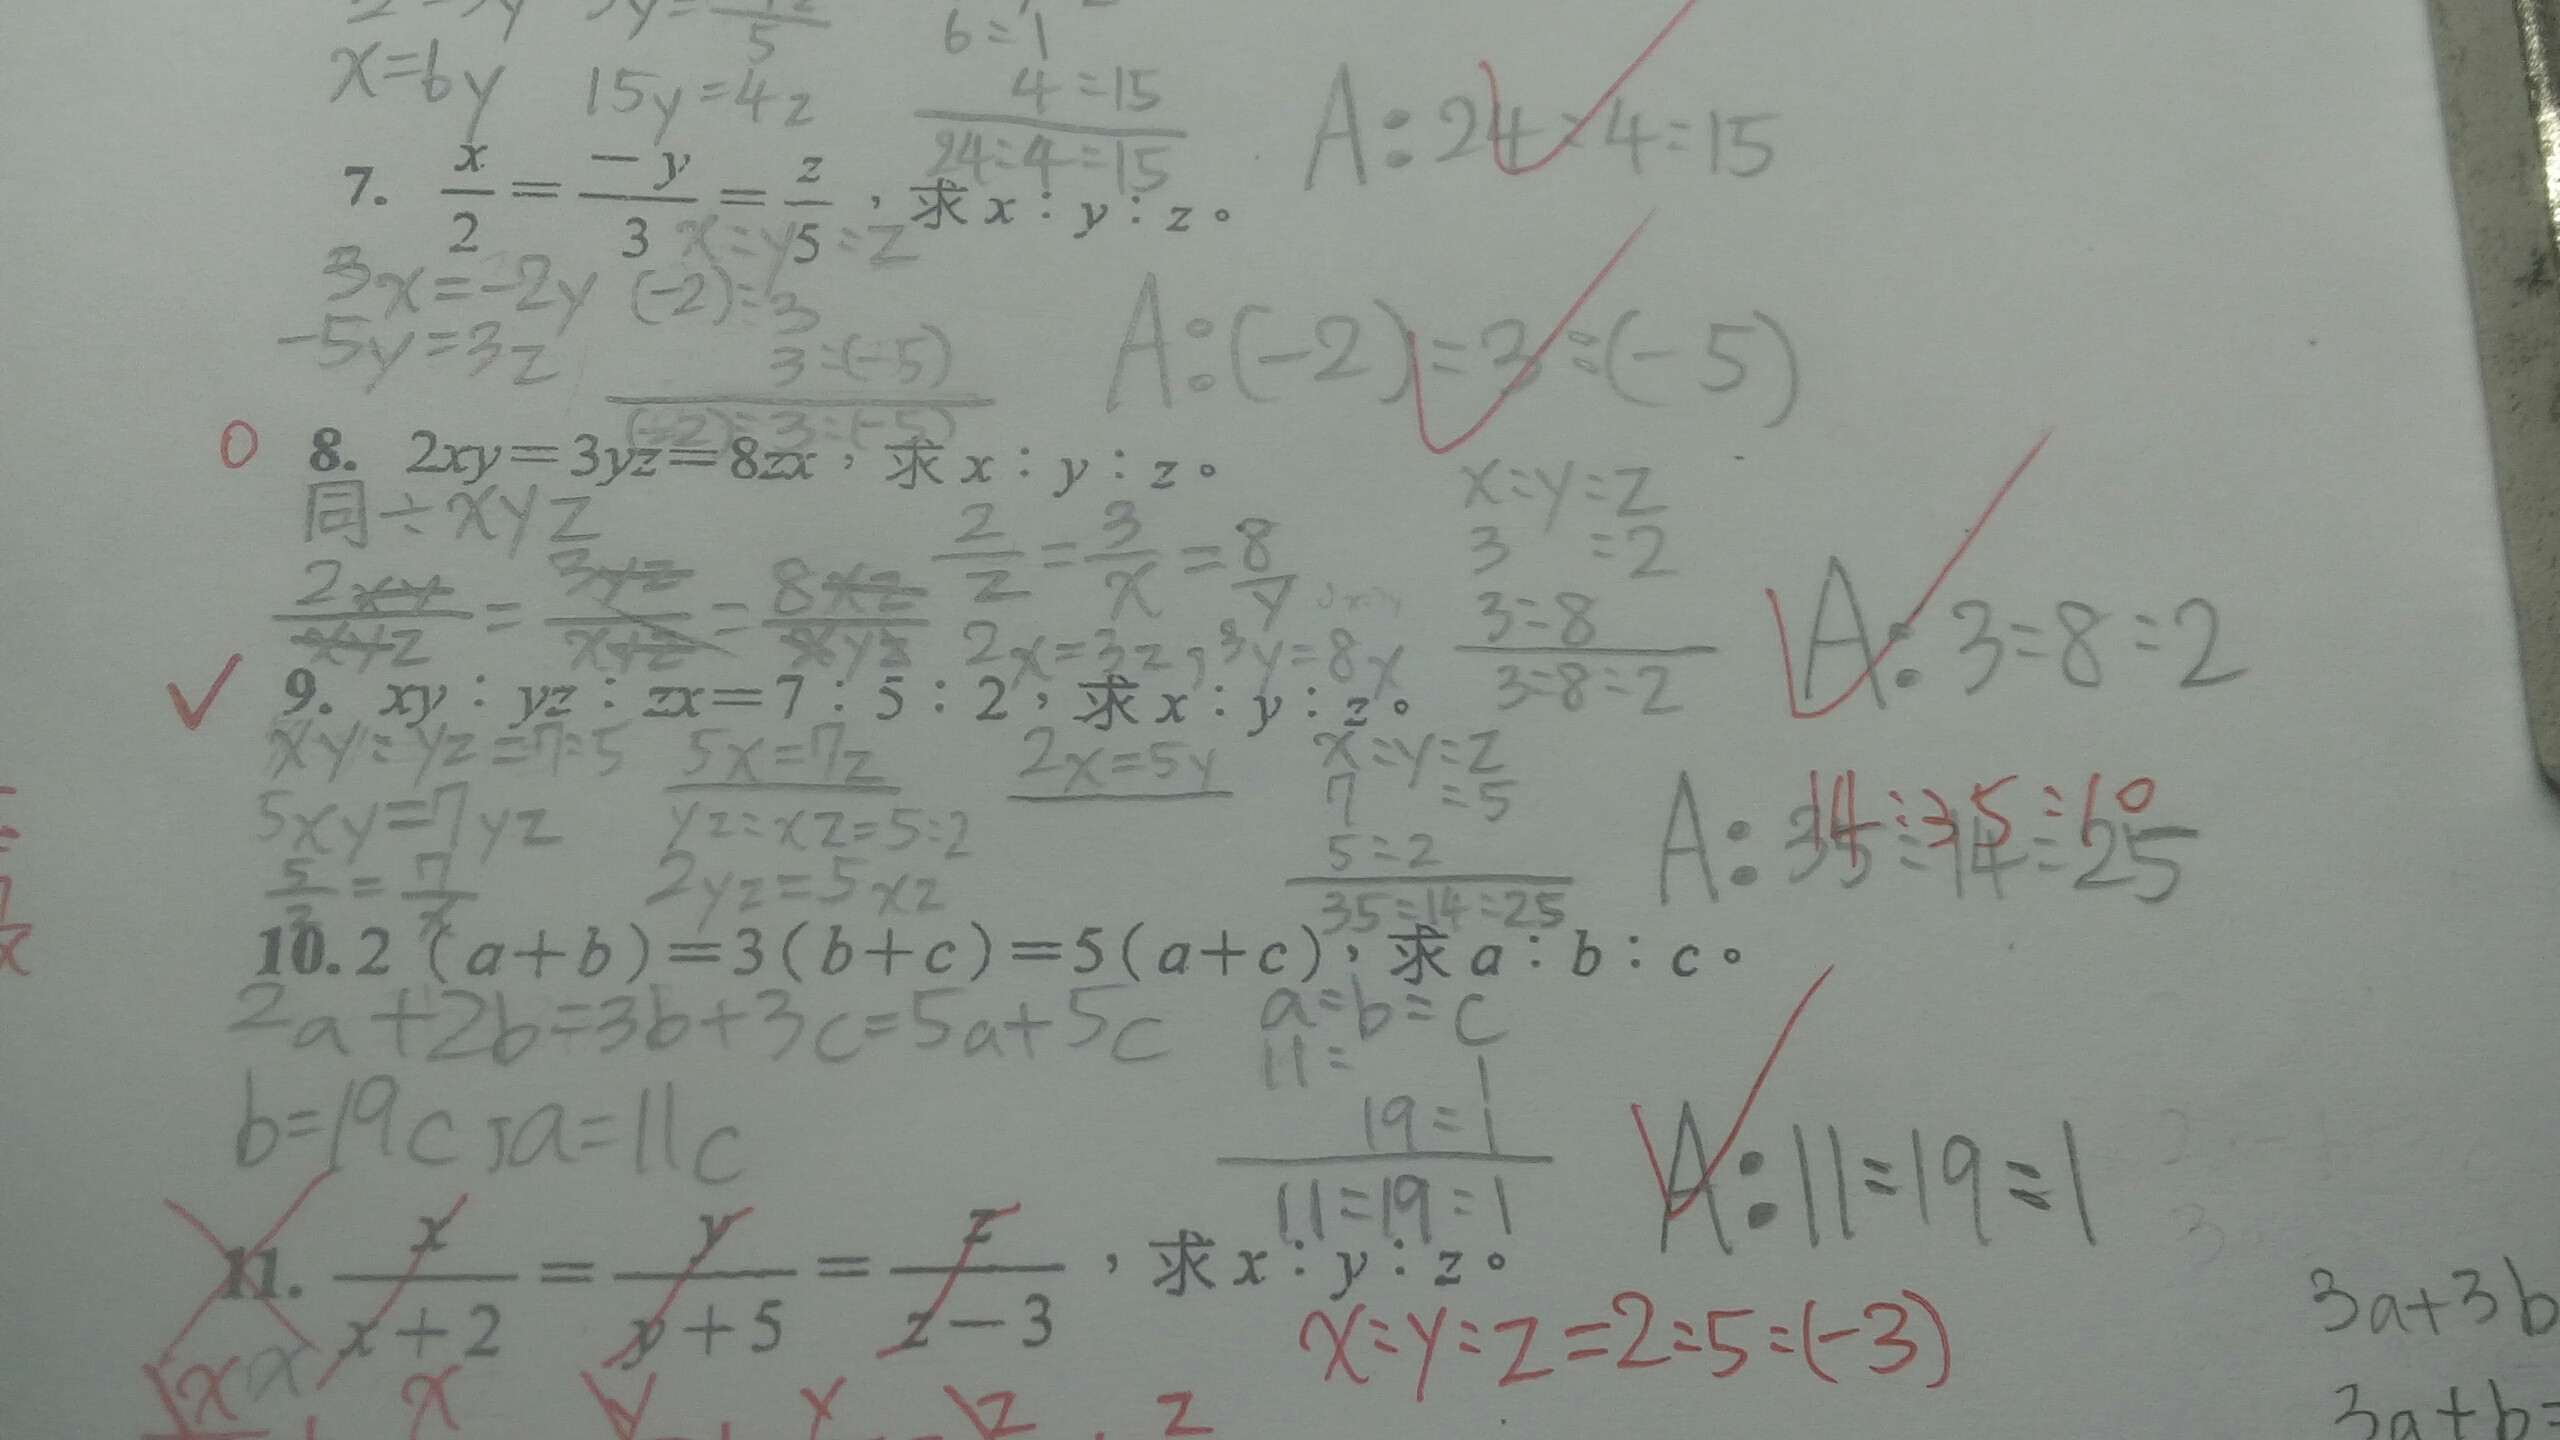 x=6y 15y=4z 6:1
4:15
24:4:15 A:24:4:15
7. x/2 = -y/3 = z/5，求x：y：z。
x:y:z
3x=-2y (-2):3
-5y=3z 3:(-5) A:(-2):3:(-5)
(-2):3:(-5)
8. 2xy=3yz=8zx，求x：y：z。
同÷xyz 2/z=3/x=8/y x:y:z
3 :2
2xy/xyz=3yz/xyz=8xz/xyz 3:8
2x=3z, 3y=8x 3:8:2 A:3:8:2
9. xy：yz：zx=7：5：2，求x：y：z。
xy:yz=7:5 5x=7z 2x=5y x:y:z
7 :5
5xy=7yz yz:xz=5:2 5:2 14:35:10
5/z=7/x 2yz=5xz 35:14:25 A:35:14:25
10. 2(a+b)=3(b+c)=5(a+c)，求a：b：c。
2a+2b=3b+3c=5a+5c a:b:c
11: 1
b=19c,a=11c 19:1
11:19:1 A:11:19:1
11. x/x+2 = y/y+5 = z/z-3，求x：y：z。
x:y:z=2:5:(-3)
3a+3b
3a+b=